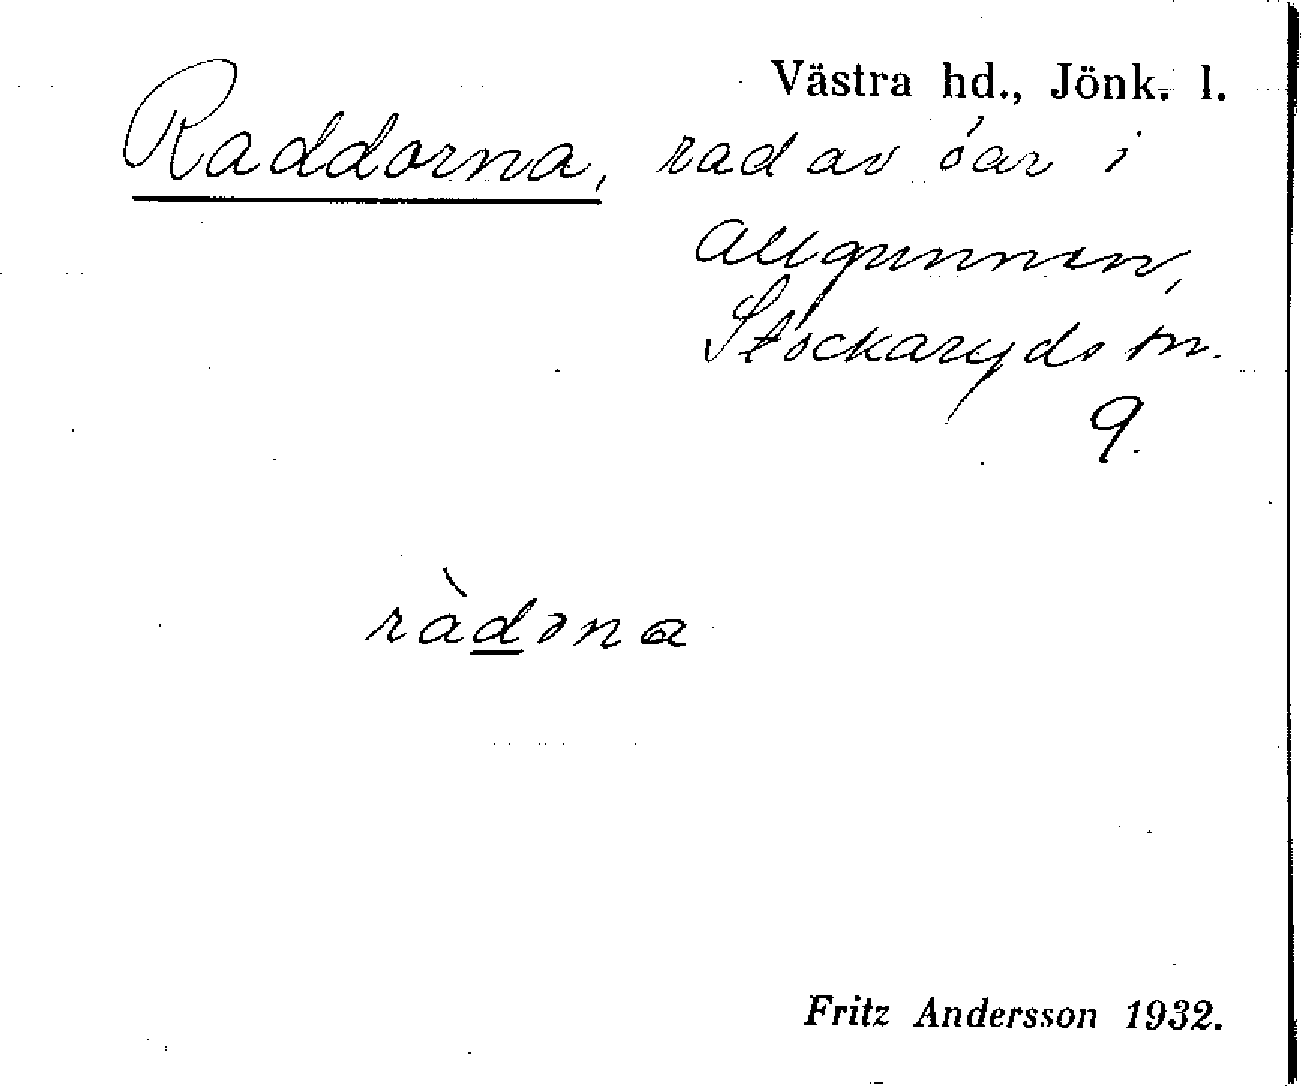 Västra hd., Jönk. l.
Raddorna, rad av öar i
Allgunnen,
Stockaryds sn.
9.
ràdəna
Fritz Andersson 1932.